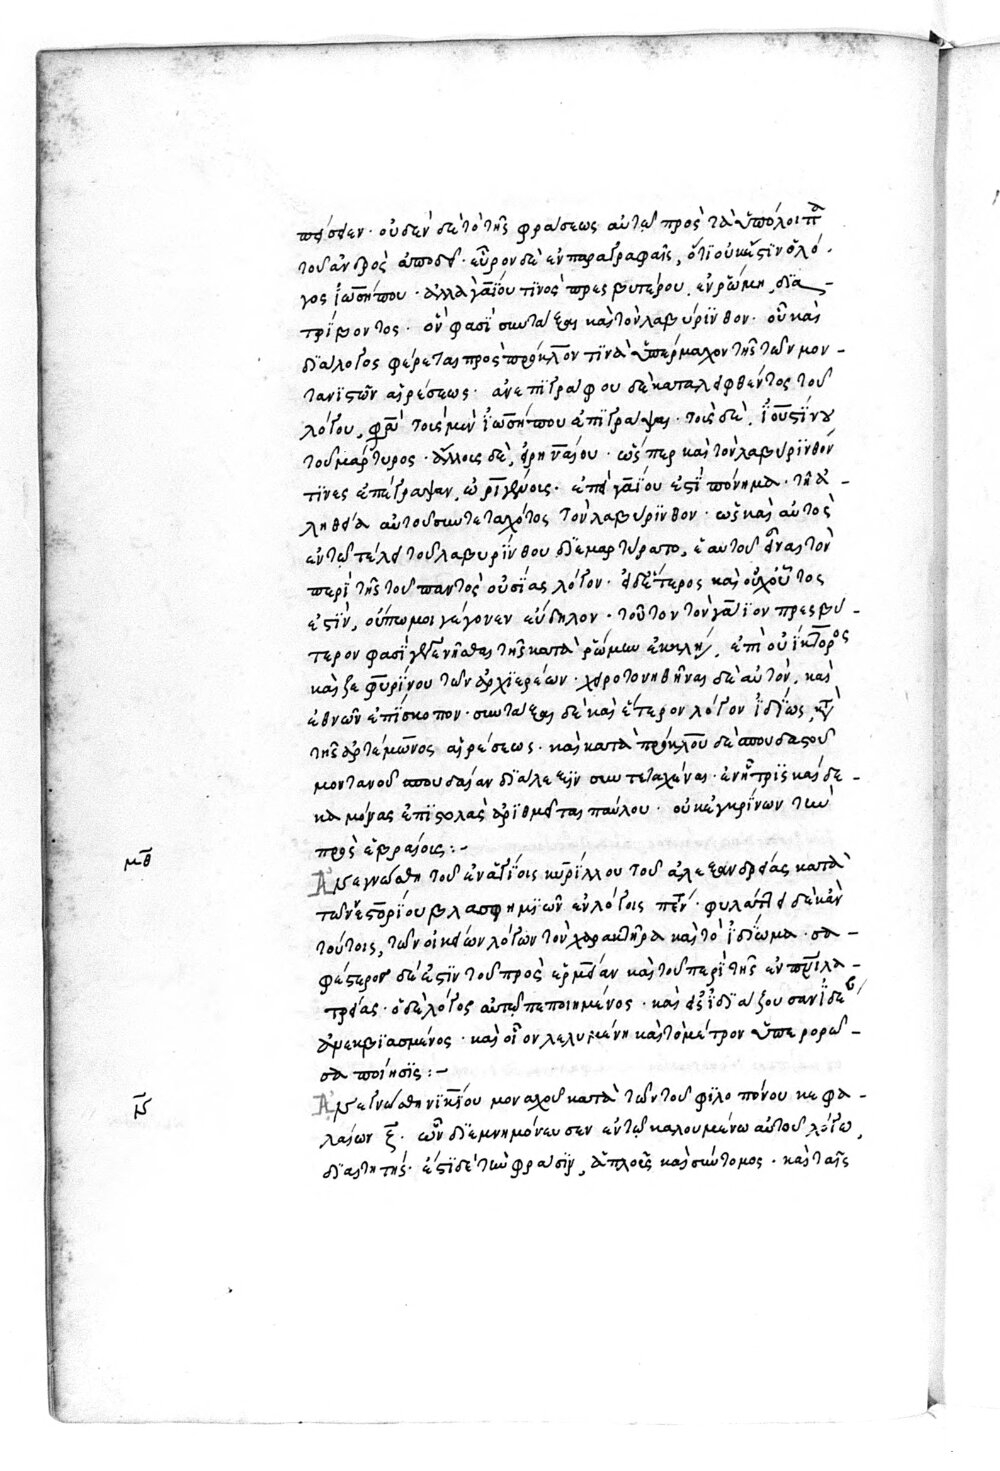 πείσειεν· οὐδὲν δὲ τὸ τῆς φράσεως αὐτῷ πρὸς τὰ ὑπόλοιπα
τοῦ ἀνδρὸς ἀποδεῖ· εὗρον δὲ ἐν παραγραφαῖς, ὅτι οὐκ ἔστιν ὁ λό-
γος ἰωσήπου· ἀλλὰ γαΐου τινὸς πρεσβυτέρου, ἐν ῥώμῃ δια-
τρίβοντος· ὅν φασι συντάξαι καὶ τὸν λαβύρινθον· οὗ καὶ
διάλογος φέρεται πρὸς πρόκλον τινὰ ὑπέρμαχον τῆς τῶν μον-
τανιστῶν αἱρέσεως· ἀνεπιγράφου δὲ καταλειφθέντος τοῦ
λόγου, φασὶ τοὺς μὲν ἰωσήπου ἐπιγράψαι· τοὺς δὲ, ἰουστίνου
τοῦ μάρτυρος· ἄλλους δὲ, εἰρηναίου· ὥσπερ καὶ τὸν λαβύρινθόν
τινες ἐπέγραψαν ὠριγένους· ἐπεὶ γαΐου ἐστὶ πόνημα· τῇ ἀ-
ληθείᾳ αὐτοῦ συντεταχότος τὸν λαβύρινθον· ὡς καὶ αὐτὸς
ἐν τῷ τέλει τοῦ λαβυρίνθου διεμαρτύρατο, ἑαυτοῦ εἶναι τὸν
περὶ τῆς τοῦ παντὸς οὐσίας λόγον· εἰ δ' ἕτερος καὶ οὐχ οὗτός
ἐστιν, οὔπω μοι γέγονεν εὔδηλον· τοῦτον τὸν γάϊον πρεσβύ-
τερόν φασι γεγενῆσθαι τῆς κατὰ ῥώμην ἐκκλησίας, ἐπὶ οὐίκτορος
καὶ ζεφυρίνου τῶν ἀρχιερέων· χειροτονηθῆναι δὲ αὐτὸν, καὶ
ἐθνῶν ἐπίσκοπον· συντάξαι δὲ καὶ ἕτερον λόγον ἰδίως κατὰ
τῆς ἀρτέμωνος αἱρέσεως· καὶ κατὰ πρόκλου δὲ σπουδαστοῦ
μοντανοῦ σπουδαίαν διάλεξιν συντεταχέναι· ἐν ᾗ τρισκαίδε-
κα μόνας ἐπιστολὰς ἀριθμεῖται παύλου· οὐκ ἐγκρίνων τὴν
πρὸς ἑβραίους:-
μθ Ἀνεγνώσθη τοῦ ἐν ἁγίοις κυρίλλου τοῦ ἀλεξανδρείας κατὰ
τῶν νεστορίου βλασφημιῶν ἐν λόγοις πέντε· φυλάττει δὲ κἀν
τούτοις, τῶν οἰκείων λόγων τὸν χαρακτῆρα καὶ τὸ ἰδίωμα· σα-
φέστερος δέ ἐστιν τοῦ πρὸς ἑρμείαν καὶ τοῦ περὶ τῆς ἐν πνεύματι λα-
τρείας· ὁ δὲ λόγος αὐτῷ πεποιημένος· καὶ εἰς ἰδιάζουσαν ἰδέαν
ἀμεκβιασμένος· καὶ οἷον λελυμένη καὶ τὸ μέτρον ὑπερορῶ-
σα ποίησις:-
ν Ἀνεγνώσθη νικίου μοναχοῦ κατὰ τῶν τοῦ φιλοπόνου κεφα-
λαίων ζ. ὧν διεμνημόνευσεν ἐν τῷ καλουμένῳ αὐτοῦ λόγῳ,
διαιτητής· ἔστι δὲ τὴν φράσιν, ἁπλοῦς καὶ σύντομος· καὶ ταῖς